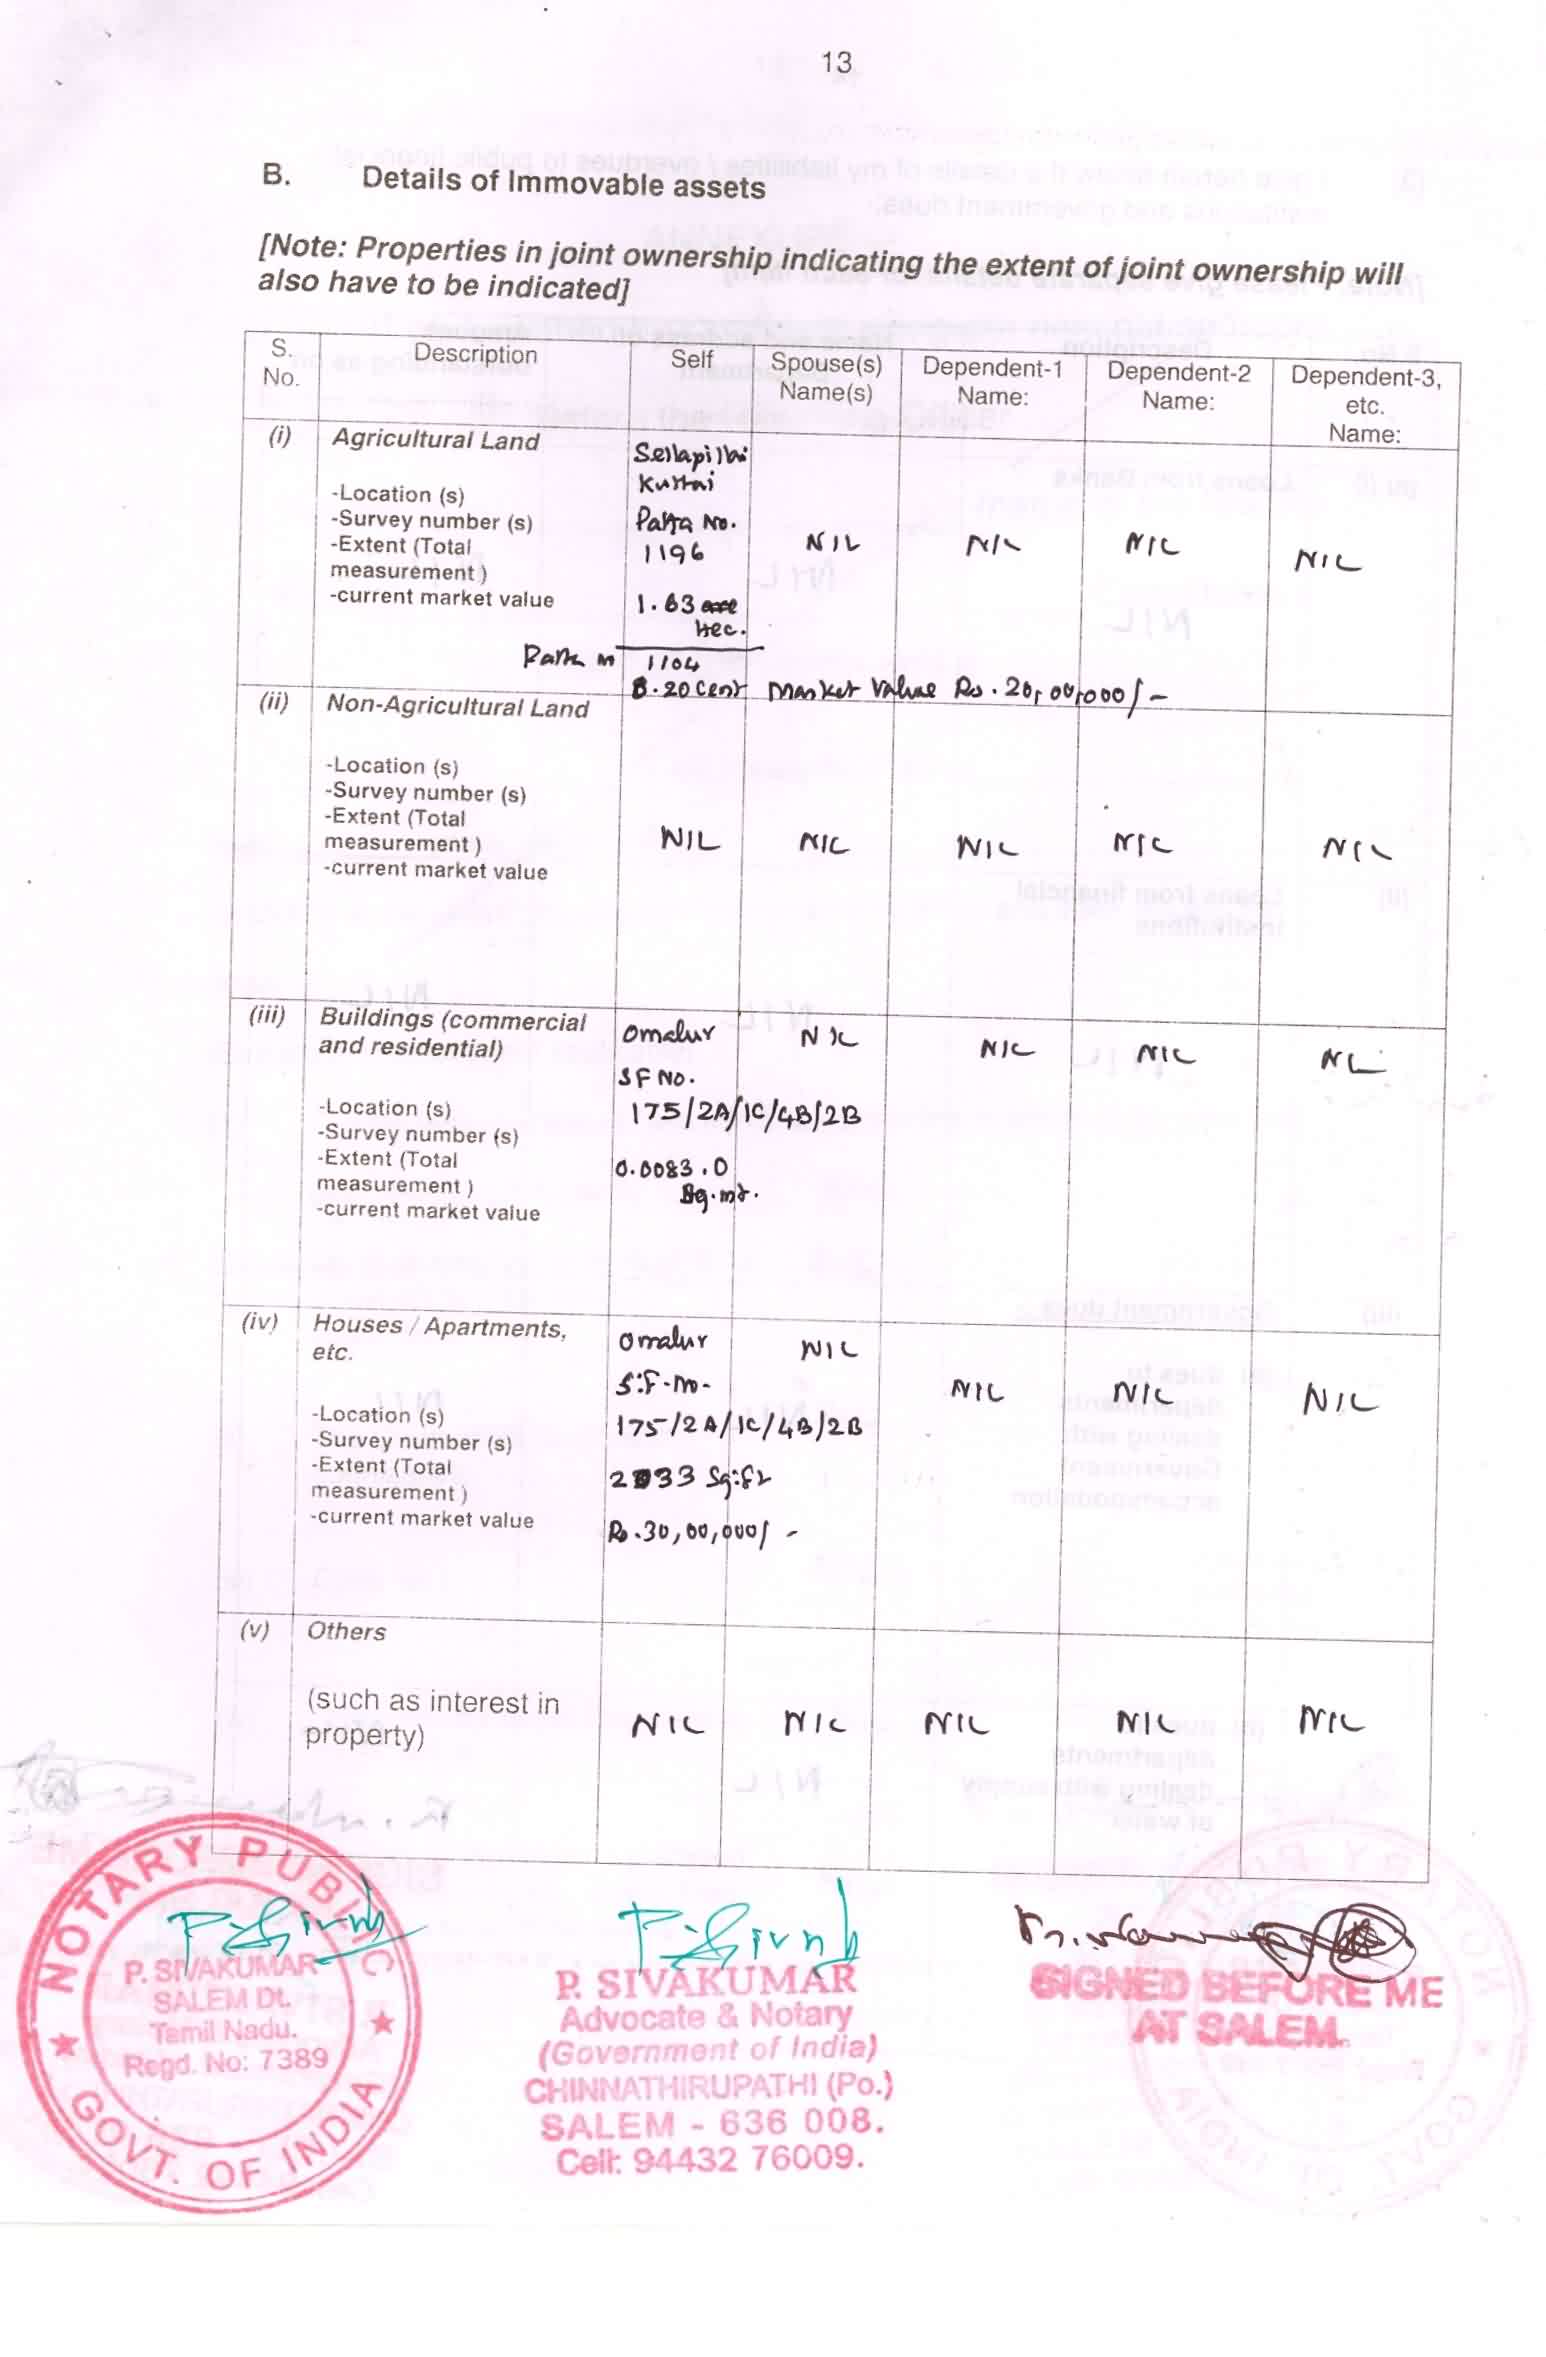 13
B. Details of Immovable assets
[Note: Properties in joint ownership indicating the extent of joint ownership will
also have to be indicated]
S. No. Description Self Spouse(s) Name(s) Dependent-1 Name: Dependent-2 Name: Dependent-3, etc. Name:
(i) Agricultural Land
-Location (s)
-Survey number (s)
-Extent (Total
measurement )
-current market value
Sellapillai
Kuttai
Patta No.
1196
1.63
Hec.
NIL NIL NIL NIL
Patta no 1104
8.20 Cent Market Value Rs. 20,00,000/-
(ii) Non-Agricultural Land
-Location (s)
-Survey number (s)
-Extent (Total
measurement )
-current market value
NIL NIL NIL NIL NIL
(iii) Buildings (commercial
and residential)
-Location (s)
-Survey number (s)
-Extent (Total
measurement )
-current market value
Omalur
SF No.
175/2A/1C/4B/2B
0.0083.0
Sq.mt.
NIL NIL NIL NIL
(iv) Houses / Apartments,
etc.
-Location (s)
-Survey number (s)
-Extent (Total
measurement )
-current market value
Omalur
S.F. no.
175/2A/1C/4B/2B
Sq.ft
Rs.30,00,000/-
NIL NIL NIL NIL
(v) Others
(such as interest in
property)
NIL NIL NIL NIL NIL
NOTARY PUBLIC
P. SIVAKUMAR
SALEM Dt.
Tamil Nadu.
Regd. No: 7389
GOVT. OF INDIA
P. SIVAKUMAR
Advocate & Notary
(Government of India)
CHINNATHIRUPATHI (Po.)
SALEM - 636 008.
Cell: 94432 76009.
SIGNED BEFORE ME
AT SALEM.